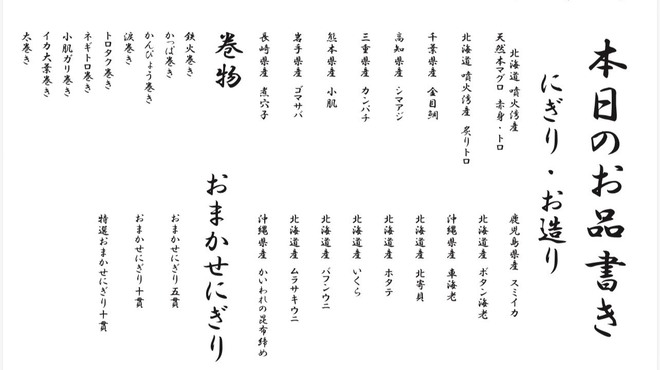 本日のお品書き
にぎり・お造り
北海道 噴火湾産
天然本マグロ 赤身・トロ
北海道 噴火湾産 炙りトロ
千葉県産 金目鯛
高知県産 シマアジ
三重県産 カンパチ
熊本県産 小肌
岩手県産 ゴマサバ
長崎県産 煮穴子
鹿児島県産 スミイカ
北海道産 ボタン海老
沖縄県産 車海老
北海道産 北寄貝
北海道産 ホタテ
北海道産 いくら
北海道産 バフンウニ
北海道産 ムラサキウニ
沖縄県産 かいわれの昆布締め
巻物
鉄火巻き
かっぱ巻き
かんぴょう巻き
涙巻き
トロタク巻き
ネギトロ巻き
小肌ガリ巻き
イカ大葉巻き
太巻き
おまかせにぎり
おまかせにぎり五貫
おまかせにぎり十貫
特選おまかせにぎり十貫